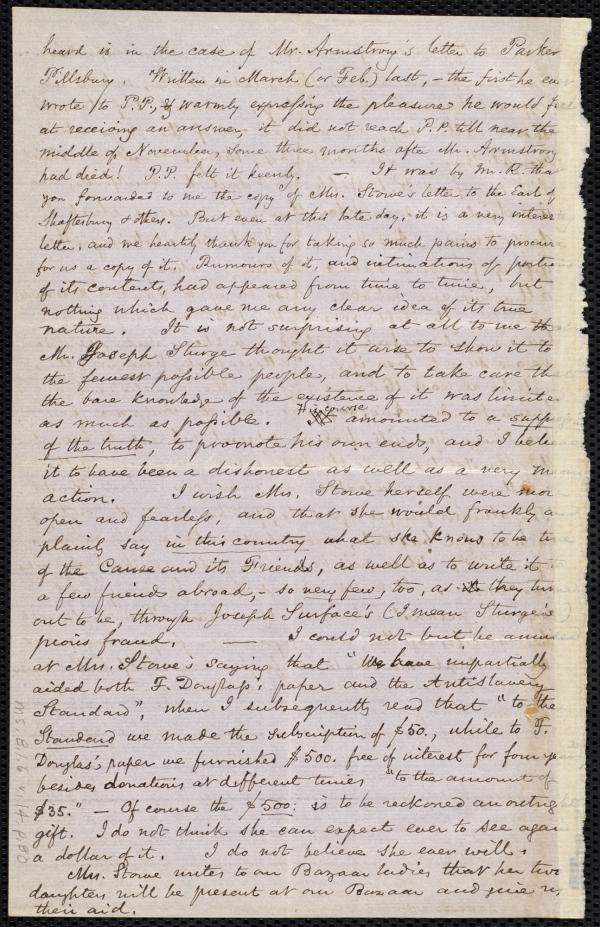 heard is in the case of Mr. Armstrong's letter to Parker
Pillsbury. Written in March (or Feb.) last, - the first he ever
wrote to P.P., & warmly expressing the pleasure he would feel
at receiving an answer, it did not reach P.P. till near the
middle of November, some three months after Mr. Armstrong
had died! P.P. felt it keenly. — It was by Mr. R. tha
you forwarded to me the copy of Mrs. Stowe's letter to the Earl of
Shaftesbury & others. But even at this late day, it is a very interest
letter, and we heartily thank you for taking so much pains to procure
for us a copy of it. Rumours of it, and intimations of portion
of its contents, had appeared from time to time, but
nothing which gave me any clear idea of its true
nature. It is not surprising at all to me th
Mr. Joseph Sturge thought it wise to show it to
the fewest possible people, and to take care th
the bare knowledge of the existence of it was limite
as much as possible. His course amounted to a supp
of the truth, to promote his own ends, and I belie
it to have been a dishonest as well as a very m
action. I wish Mrs. Stowe herself were mor
open and fearless, and that she would frankly a
plainly say in this country what she knows to be t
of the Cause and its Friends, as well as to write it
a few friends abroad, - so very few, too, as they turn
out to be, through Joseph Surface's (I mean Sturge's)
pious fraud. — I could not but be amus
at Mrs. Stowe's saying that "We have impartially
aided both F. Douglass's paper and the Antislavery
Standard", when I subsequently read that "to the
Standard we made the subscription of $50., while to F.
Douglas's paper we furnished $500. free of interest for four ye
besides donations at different times "to the amount of
$35." — Of course the $500: is to be reckoned an outrig
gift. I do not think she can expect ever to see again
a dollar of it. I do not believe she ever will.
Mrs. Stowe writes to our Bazaar ladies that her two
daughters will be present at our Bazaar and give us
their aid.